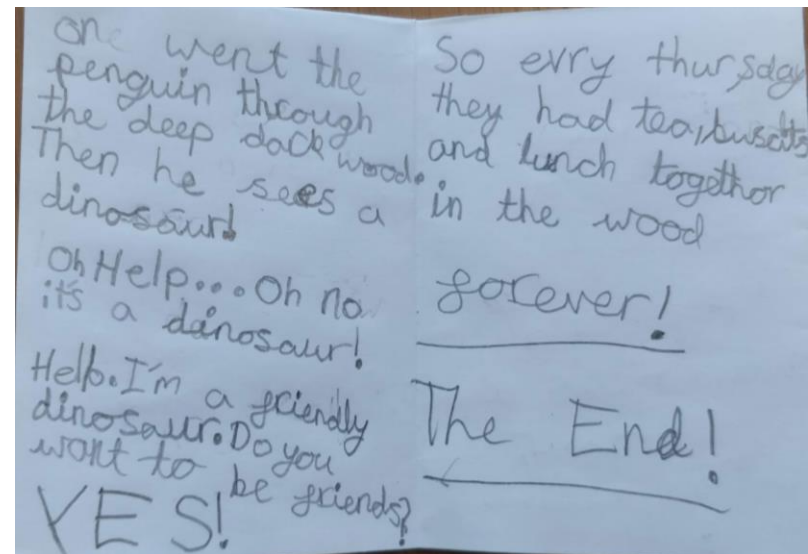 on went the
penguin through
the deep dack wood.
Then he sees a
dinosaur!
Oh Help... Oh no
it's a dainosaur!
Hello. I'm a friendly
dinosaur. Do you
want to be friends?
YES!
So evry thursday
they had tea, buscits
and lunch togethor
in the wood
forever!
The End!